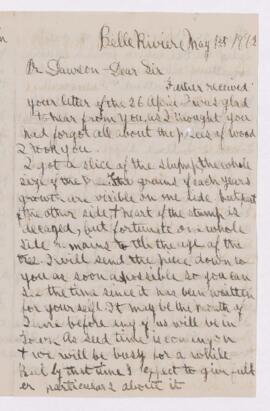 Belle Riviere May 1st
Dr Dawson - Dear Sir
Father received
your letter of the 26 April I was glad
to hear from you, as I thought you
had forgot all about the pieces of wood
I took you
I got a slice of the stump the whole
size of the tree. The grains of each years
growth are visible on one side but
the other side & heart of the stump is
decayed, but fortunate one whole
side remains to the age of the
tree. I will send the piece down to
you as soon as possible so you can
see the time since it has been written
for your self. It may be the month of
June before any of us will be in
Town As seed time is coming on
& we will be busy for a while
But by that time I expect to give full
er particulars about it